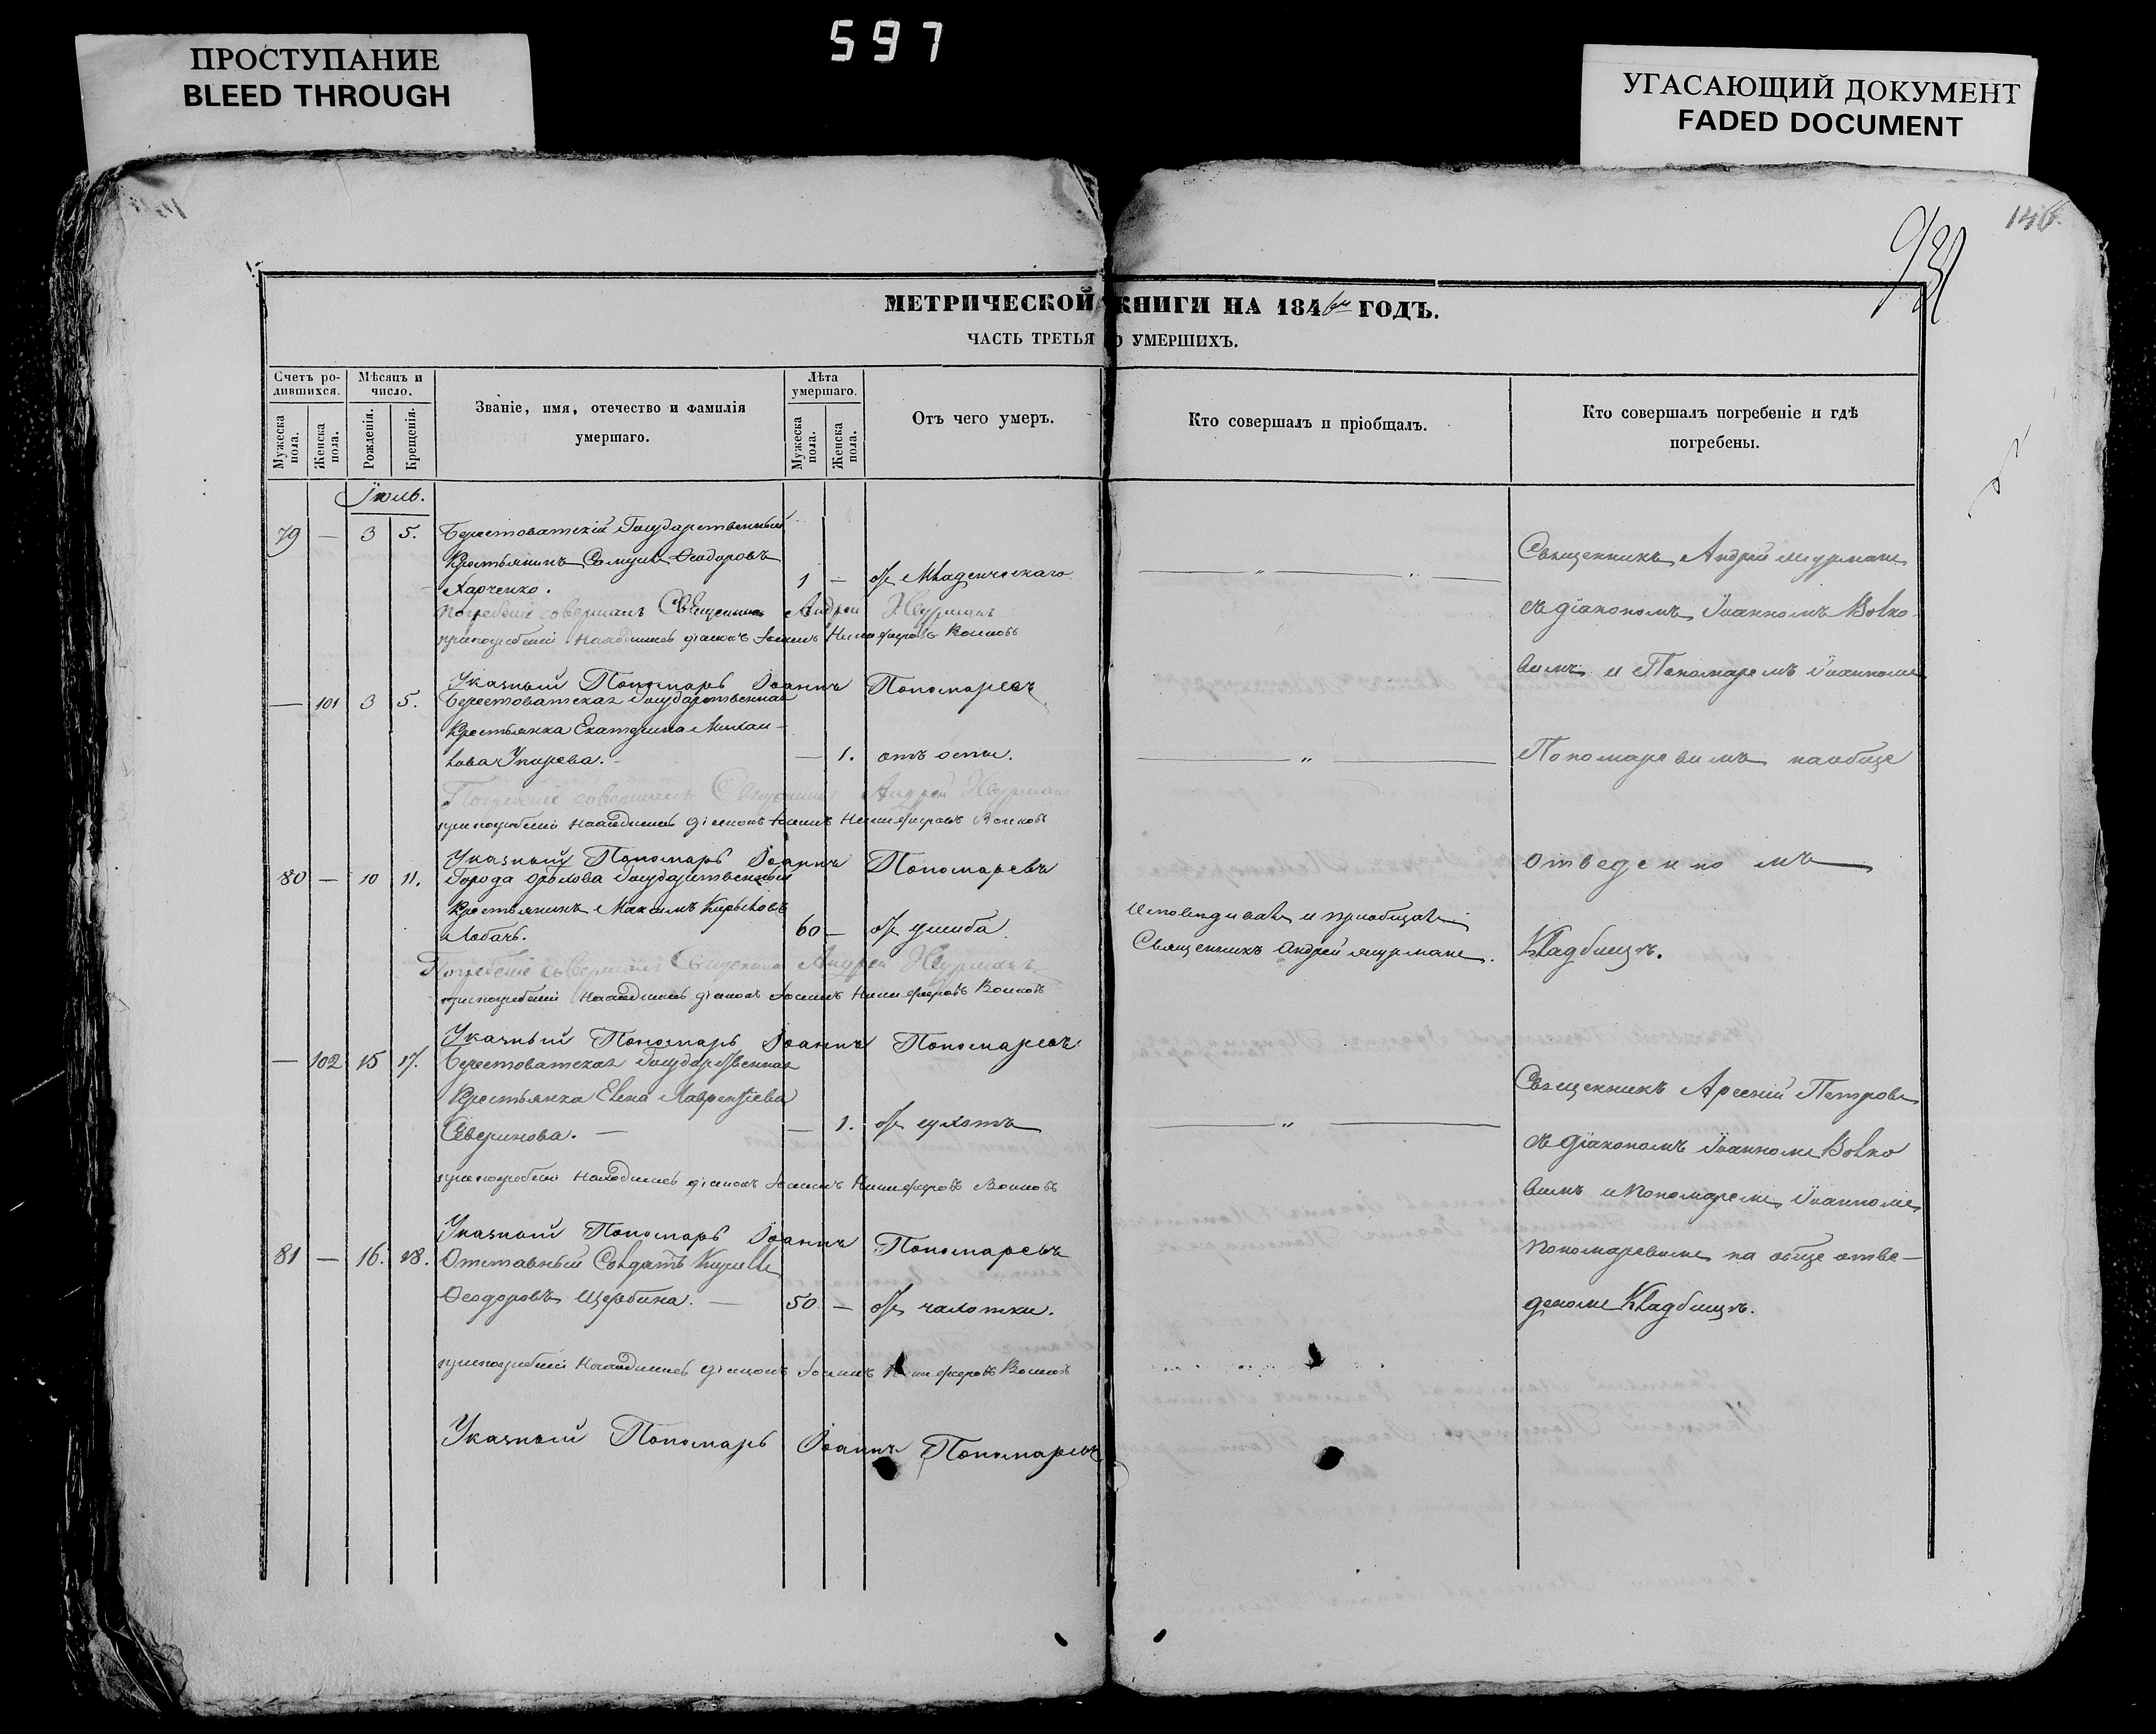 597
ПРОСТУПАНИЕ
BLEED THROUGH
УГАСАЮЩИЙ ДОКУМЕНТ
FADED DOCUMENT
146.
МЕТРИЧЕСКОЙ КНИГИ НА 1846й ГОДЪ.
ЧАСТЬ ТРЕТЬЯ О УМЕРШИХЪ.
Счетъ ро-
дившихся.
Мужеска пола.
Женска пола.
Мѣсяцъ и
число.
Рожденія.
Крещенія.
Званіе, имя, отечество и фамилія
умершаго.
Лѣта
умершаго.
Мужеска пола.
Женска пола.
Отъ чего умеръ.
Кто совершалъ и пріобщалъ.
Кто совершалъ погребеніе и гдѣ
погребены.
Іюль.
79 — 3 5. Берестоватскій Государственный
Крестьянинъ Самуилъ Ѳеодоровъ
Харченко. 1 — отъ Младенческаго
Погребеніе совершалъ Священникъ Андрей
при погребеніи находился діаконъ Іоаннъ Никифоровъ
Указный Пономарь Іоаннъ Пономаревъ
— 101 3 5. Берестоватская Государственная
Крестьянка Екатерина Михаи-
лова — 1. отъ оспы.
Погребеніе совершалъ Священникъ Андрей
при погребеніи находился діаконъ Іоаннъ Никифоровъ
Указный Пономарь Іоаннъ Пономаревъ
80 — 10 11. Города Орѣхова Государственный
Крестьянинъ Максимъ Кириловъ
Лобачь. 60 — отъ ушиба
Погребеніе совершалъ Священникъ Андрей
при погребеніи находился діаконъ Іоаннъ Никифоровъ
Указный Пономарь Іоаннъ Пономаревъ
— 102 15 17. Берестоватская Государственная
Крестьянка Елена Лаврентіева
Северинова. — — 1. отъ сухотъ
при погребеніи находился діаконъ Іоаннъ Никифоровъ
Указный Пономарь Іоаннъ Пономаревъ
81 — 16. 18. Отставный Солдатъ Кирилъ
Ѳеодоровъ Щербина. — 50 — отъ чахотки.
при погребеніи находился діаконъ Іоаннъ Никифоровъ
Указный Пономарь Іоаннъ Пономаревъ
Исповѣдивалъ и пріобщалъ
Священникъ Андрей
Священникъ Андрей
съ діакономъ Іоанномъ Волко-
вимъ и Пономаремъ Іоанномъ
Пономаревимъ на обще
отведенномъ
Кладбищѣ.
Священникъ Арсеній Петровъ
съ діакономъ Іоанномъ Волко
вимъ и Пономаремъ Іоанномъ
Пономаревимъ на обще отве-
деномъ Кладбищѣ.